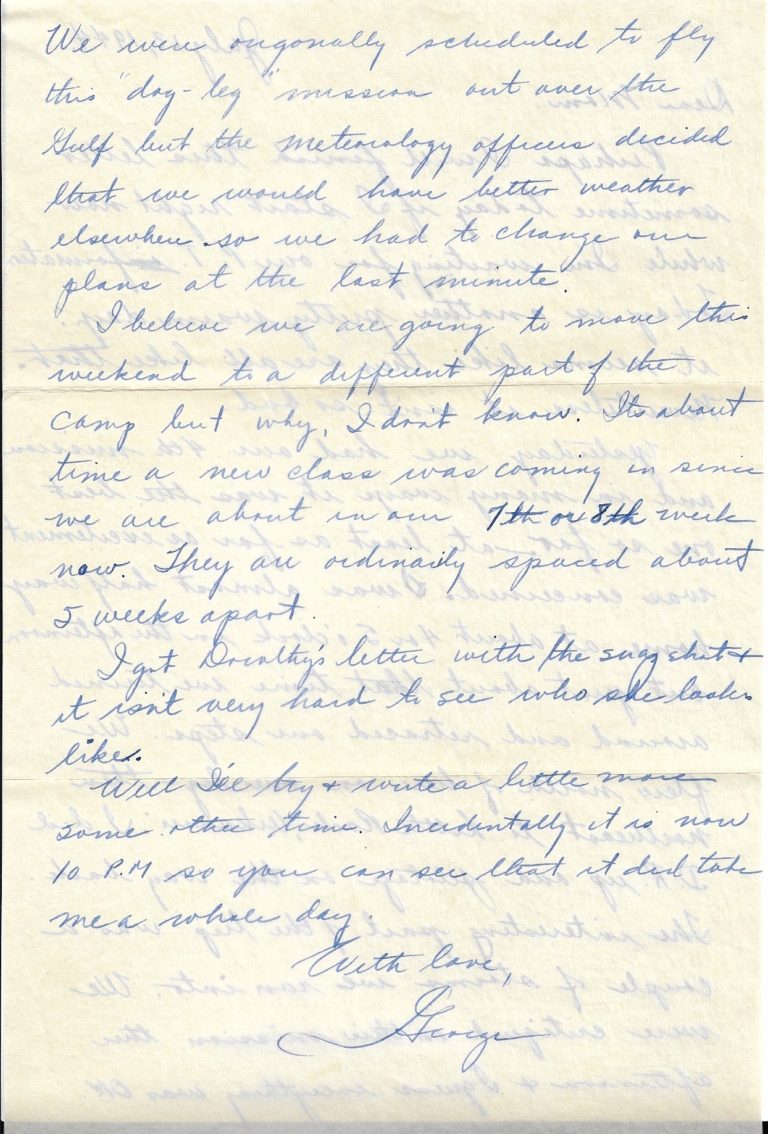 We were origonally scheduled to fly
this "dog-leg" mission out over the
Gulf but the meteorology officers decided
that we would have better weather
elsewhere so we had to change our
plans at the last minute.
I believe we are going to move this
weekend to a different part of the
camp but why, I don't know. Its about
time a new class was coming in since
we are about in our 7th or 8th week
now. They are ordinarily spaced about
5 weeks apart.
I got Dorothy's letter with the snapshot +
it isn't very hard to see who she looks
like.
Well I'll try + write a little more
some other time. Incidentally it is now
10 P.M so you can see that it did take
me a whole day.
With love,
George